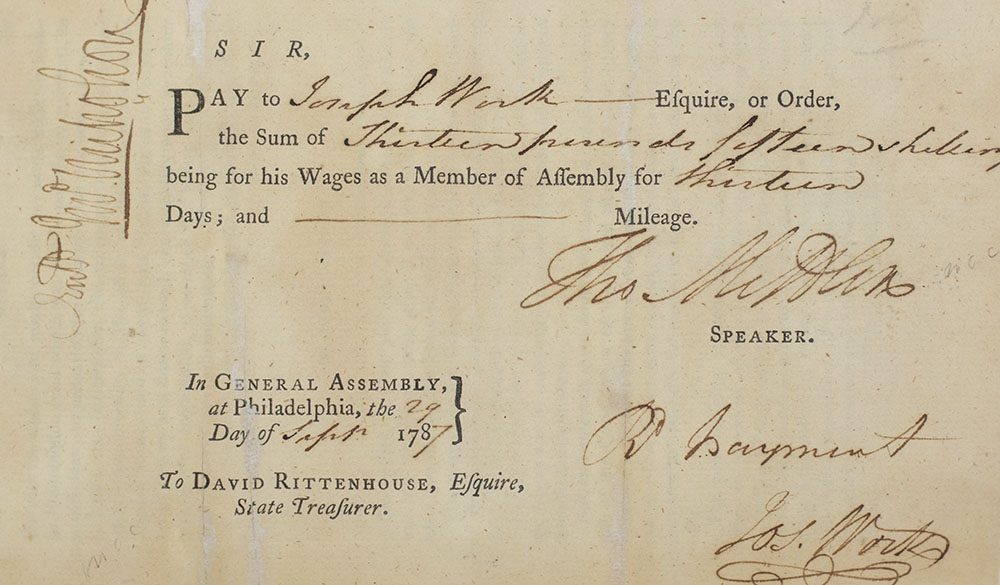 SIR,
PAY to Joseph Work Eſquire, or Order,
the Sum of Thirteen pounds fifteen shillin
being for his Wages as a Member of Aſſembly for Thirteen
Days; and Mileage.
Tho
SPEAKER.
In GENERAL ASSEMBLY,
at Philadelphia, the 29
Day of Sept 1787
To DAVID RITTENHOUSE, Eſquire,
State Treaſurer.
Rd payment
Jos. Work
Entd